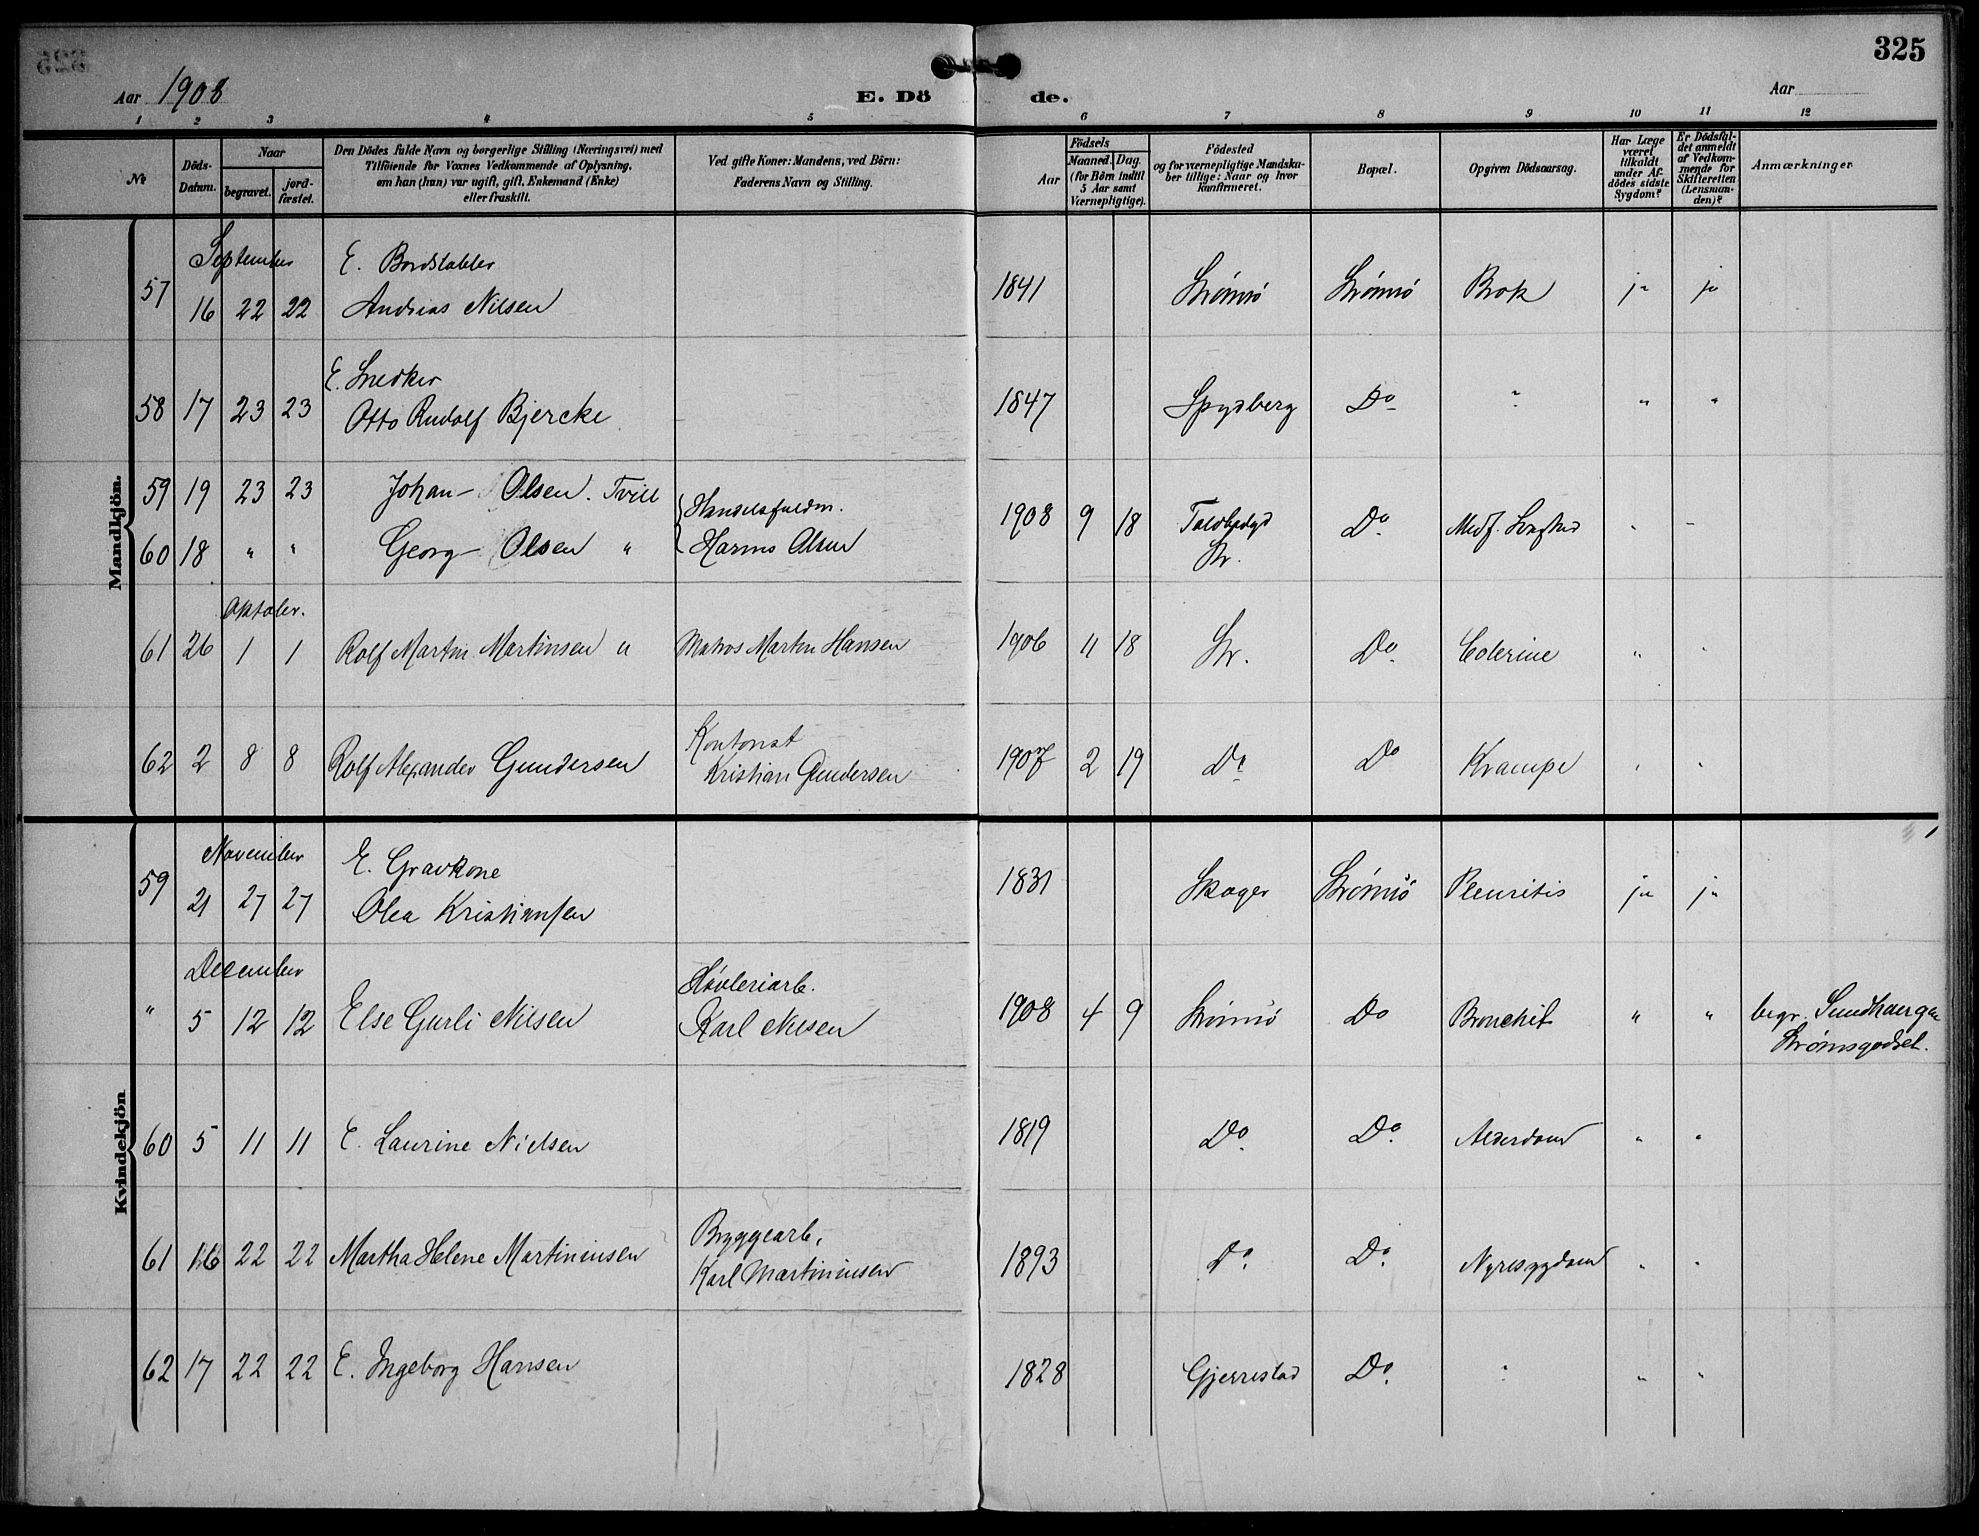 325
Aar 1908
E. Döde.
Aar
1 2 3 4 5 6 7 8 9 10 11 12
No
Döds-Datum.
Naar
begravet.
jord-fæstet.
Den Dödes fulde Navn og borgerlige Stilling (Næringsvei) med
Tilföiende for Voxnes Vedkommende af Oplysning,
om han (hun) var ugift, gift, Enkemand (Enke)
eller fraskilt.
Ved gifte Koner: Mandens, ved Börn:
Faderens Navn og Stilling.
Födsels
Aar
Maaned. Dag.
(for Börn indtil
5 Aar samt
Værnepligtige).
Födested
og for værnepligtige Mandska-
ber tillige: Naar og hvor
konfirmeret.
Bopæl.
Opgiven Dödsaarsag.
Har Læge
været
tilkaldt
under Af-
dödes sidste
Sygdom?
Er Dödsfal-
det anmeldt
af Vedkom-
mende for
Skifteretten
(Lensman-
den)?
Anmærkninger
Mandkjön.
September
57 16 22 22 E. Bordstabler
Andreas Nilsen 1841 Strømsö Strømsö Brok ja ja
58 17 23 23 E. Snedker
Otto Rudolf Bjercke 1847 Spydberg Do " " "
59 19 23 23 Johan Olsen. Tvill
60 18 " " Georg Olsen " Harms Olsen 1908 9 18 Str. Do
Oktober.
61 26 1 1 Rolf Martin Martinsen " Matros Martin Hansen 1906 11 18 Str. Do Colerine "
62 2 8 8 Rolf Alexander Gundersen Kontorist
Kristian Gundersen 1907 2 19 Do Do Krampe
Kvindekjön
November
59 21 27 27 E. Gravkone
Olea Kristiansen 1831 Skoger Strømsö Pleuritis ja ja
December
" 5 12 12 Else Gurli Nilsen Høvleriarb.
Karl Nilsen 1908 4 9 Strømsö Do Bronchit " " begr. Sundhaugen
Strømsgodset.
60 5 11 11 E. Laurine Nielsen 1819 Do Do Alderdom " "
61 16 22 22 Martha Helene Martiniusen Bryggearb.
Karl Martiniusen 1893 Do Do Nyresygdom " "
62 17 22 22 E. Ingeborg Hansen 1828 Gjerrestad Do " " "